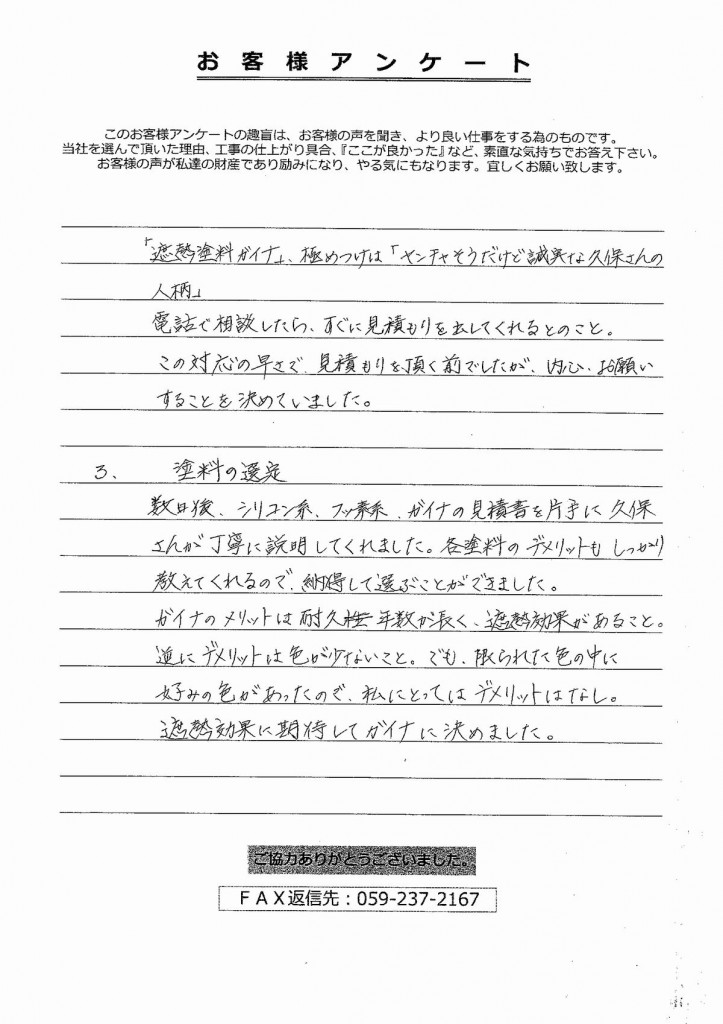 お客様アンケート
このお客様アンケートの趣旨は、お客様の声を聞き、より良い仕事をする為のものです。
当社を選んで頂いた理由、工事の仕上がり具合、『ここが良かった』など、素直な気持ちでお答え下さい。
お客様の声が私達の財産であり励みになり、やる気にもなります。宜しくお願い致します。
「遮熱塗料ガイナ」、極めつけは「ヤンチャそうだけど誠実な久保さんの
人柄」
電話で相談したら、すぐに見積もりを出してくれるとのこと。
この対応の早さで、見積もりを頂く前でしたが、内心、お願い
することを決めていました。
3、 塗料の選定
数日後、シリコン系、フッ素系、ガイナの見積書を片手に久保
さんが丁寧に説明してくれました。各塗料のデメリットもしっかり
教えてくれるので、納得して選ぶことができました。
ガイナのメリットは耐久年数が長く、遮熱効果があること。
逆にデメリットは色が少ないこと。でも、限られた色の中に
好みの色があったので、私にとってはデメリットはなし。
遮熱効果に期待してガイナに決めました。
ご協力ありがとうございました。
FAX返信先：059-237-2167